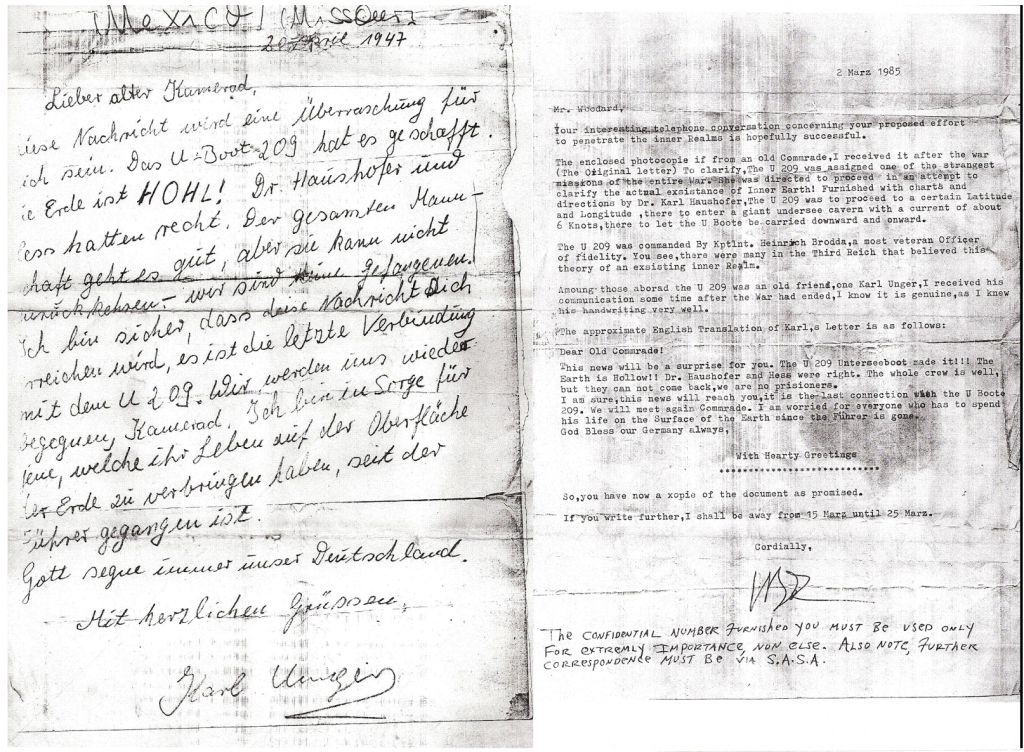 [Mexico] (Missouri)
20 April 1947
Lieber alter Kamerad,
iese Nachricht wird eine Überraschung für
ich sein. Das U-Boot 209 hat es geschafft.
ie Erde ist HOHL! Dr. Haushofer und
ess hatten recht. Der gesamten Mann-
chaft geht es gut, aber sie kann nicht
urückkehsen. - wir sind keine Gefangenen.
Ich bin sicher, dass deise Nachricht Dich
rreichen wird, es ist die letzte Verbindung
mit dem U 209. Wir werden uns wieder
begegnen, Kamerad. Ich bin in Sorge für
jene, welche ihr Leben auf der Oberfläche
der Erde zu verbringen haben, seit der
Führer gegangen ist.
Gott segne immer unser Deutschland.
Mit herzlichen Grüssen,
Karl Unger
2 Marz 1985
Mr. Woodard,
Your interesting telephone conversation concerning your proposed effort
to penetrate the inner Realms is hopefully successful.
The enclosed photocopie if from an old Commrade,I received it after the war
(The Original letter) To clarify,The U 209 was assigned one of the strangest
missions of the entire War. She was directed to proceed in an attempt to
clarify the actual exsistance of Inner Earth! Furnished with charts and
directions by Dr. Karl Haushofer,The U 209 was to proceed to a certain Latitude
and Longitude ,there to enter a giant undersee cavern with a current of about
6 Knots,there to let the U Boote be carried downward and onward.
The U 209 was commanded By Kptlnt. Heinrich Brodda,a most veteran Officer
of fidelity. You see,there were many in the Third Reich that believed this
theory of an exsisting inner Realm.
Amoung those aborad the U 209 was an old friend,one Karl Unger,I received his
communication some time after the War had ended,I know it is genuine,as I knew
his handwriting very well.
The approximate English Translation of Karl,s Letter is as follows:
Dear Old Commrade!
This news will be a surprise for you. The U 209 Unterseeboot made it!!! The
Earth is Hollow!! Dr. Haushofer and Hess were right. The whole crew is well,
but they can not come back,we are no prisioners.
I am sure,this news will reach you,it is the last connection with the U Boote
209. We will meet again Commrade. I am worried for everyone who has to spend
his life on the Surface of the Earth since the Führer is gone.
God Bless our Germany always,
With Hearty Greetings
So,you have now a xopie of the document as promised.
If you write further,I shall be away from 15 Marz until 25 Marz.
Cordially,
THE CONFIDENTIAL NUMBER FURNISHED YOU MUST BE USED ONLY
FOR EXTREMLY IMPORTANCE, NON ELSE. ALSO NOTE, FURTHER
CORRESPONDENCE MUST BE VIA S.A.S.A.